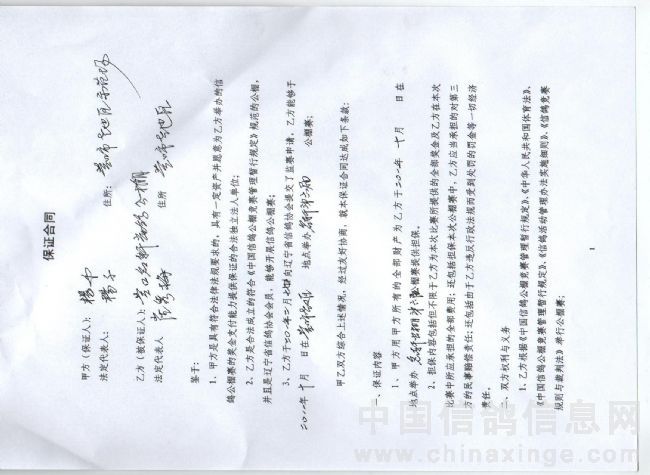 保证合同
甲方（保证人）： 住所：
法定代表人：
乙方（被保证人）： 住所
法定代表人
鉴于：
1、甲方是具有符合法律法规要求的，具有一定资产并愿意为乙方举办的信
鸽公棚赛的奖金支付能力提供保证的合法独立法人单位；
2、乙方是合法成立的符合《中国信鸽公棚竞赛管理暂行规定》规范的公棚，
并且是辽宁省信鸽协会会员，能够开展信鸽公棚赛；
3、乙方于 向辽宁省信鸽协会提交了监赛申请，乙方能够于
年十月 日在 地点举办 公棚赛；
甲乙双方综上述情况，经过友好协商，就本保证合同达成如下条款：
一、保证内容
1、甲方用甲方所有的全部财产为乙方于 年 十月 日在
地点举办 公棚赛提供担保。
2、担保内容包括但不限于乙方为本次比赛所提供的全部奖金及乙方在本次
比赛中所应承担的全部费用；还包括担保本次公棚赛中，乙方应当承担的对第三
方的民事赔偿责任；还包括由于乙方违反行政法规而受到处罚的罚金等一切经济
责任。
二、双方权利与义务
1、乙方根据《中国信鸽公棚竞赛管理暂行规定》、《中华人民共和国体育法》、
《中国信鸽公棚竞赛管理暂行规定》、《信鸽活动管理办法实施细则》、《信鸽竞赛
规则与裁判法》举行公棚赛；
1
中国信鸽信息网
www.chinaxinge.com